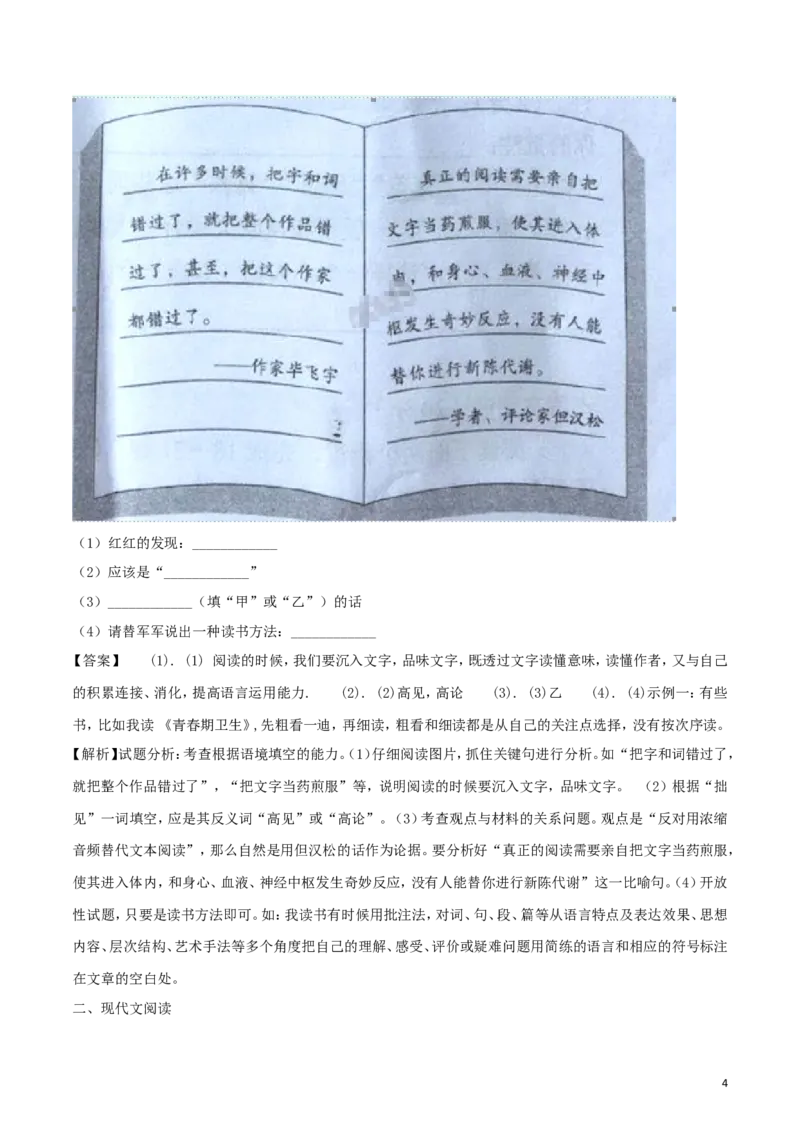 在许多时候，把字和词
错过了，就把整个作品错
过了，甚至，把这个作家
都错过了。
——作家毕飞宇
真正的阅读需要亲自把
文字当药煎服，使其进入体
内，和身心、血液、神经中
枢发生奇妙反应，没有人能
替你进行新陈代谢。
——学者、评论家但汉松
（1）红红的发现：____________
（2）应该是“____________”
（3）____________（填“甲”或“乙”）的话
（4）请替军军说出一种读书方法：____________
【答案】 (1). (1) 阅读的时候,我们要沉入文字,品味文字,既透过文字读懂意味,读懂作者,又与自己
的积累连接、消化,提高语言运用能力. (2). (2)高见,高论 (3). (3)乙 (4). (4)示例一:有些
书,比如我读《青春期卫生》,先粗看一迪,再细读,粗看和细读都是从自己的关注点选择,没有按次序读。
【解析】试题分析:考查根据语境填空的能力。(1)仔细阅读图片,抓住关键句进行分析。如“把字和词错过了,
就把整个作品错过了”，“把文字当药煎服”等，说明阅读的时候要沉入文字，品味文字。 （2）根据“拙
见”一词填空,应是其反义词“高见”或“高论”。(3)考查观点与材料的关系问题。观点是“反对用浓缩
音频替代文本阅读”,那么自然是用但汉松的话作为论据。要分析好“真正的阅读需要亲自把文字当药煎服,
使其进入体内,和身心、血液、神经中枢发生奇妙反应,没有人能替你进行新陈代谢”这一比喻句。(4)开放
性试题,只要是读书方法即可。如:我读书有时候用批注法,对词、句、段、篇等从语言特点及表达效果、思想
内容、层次结构、艺术手法等多个角度把自己的理解、感受、评价或疑难问题用简练的语言和相应的符号标注
在文章的空白处。
二、现代文阅读
4